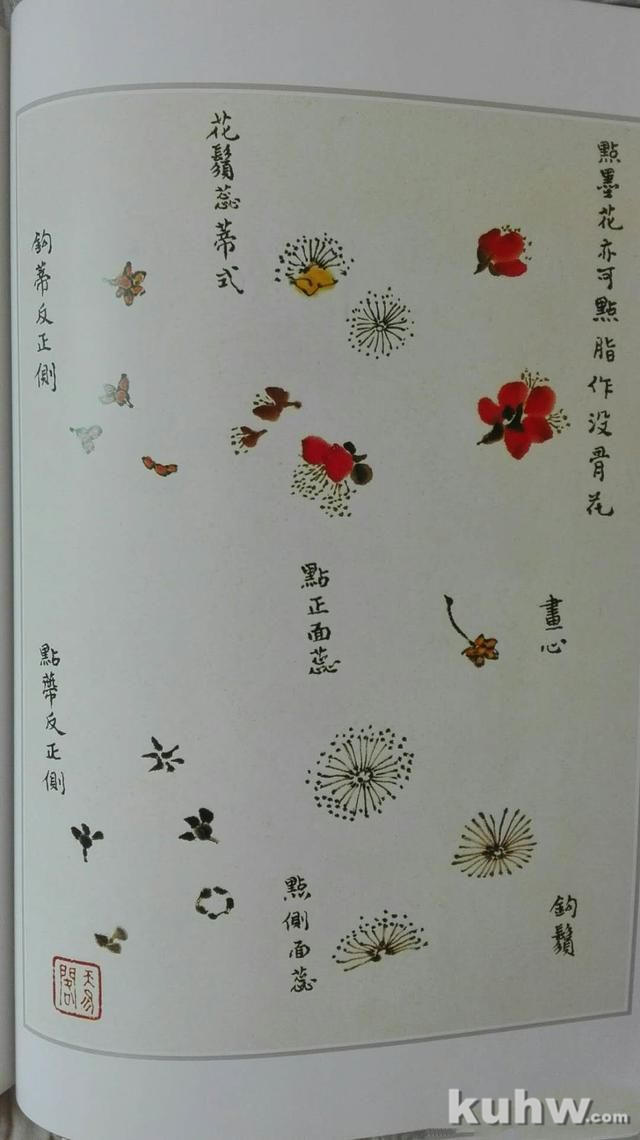 點墨花亦可點脂作没骨花
花鬚蕊蒂式
鈎蒂反正側
點正面蕊
畫心
點蒂反正側
點側面蕊
鈎鬚
天易閣
kuhw.com